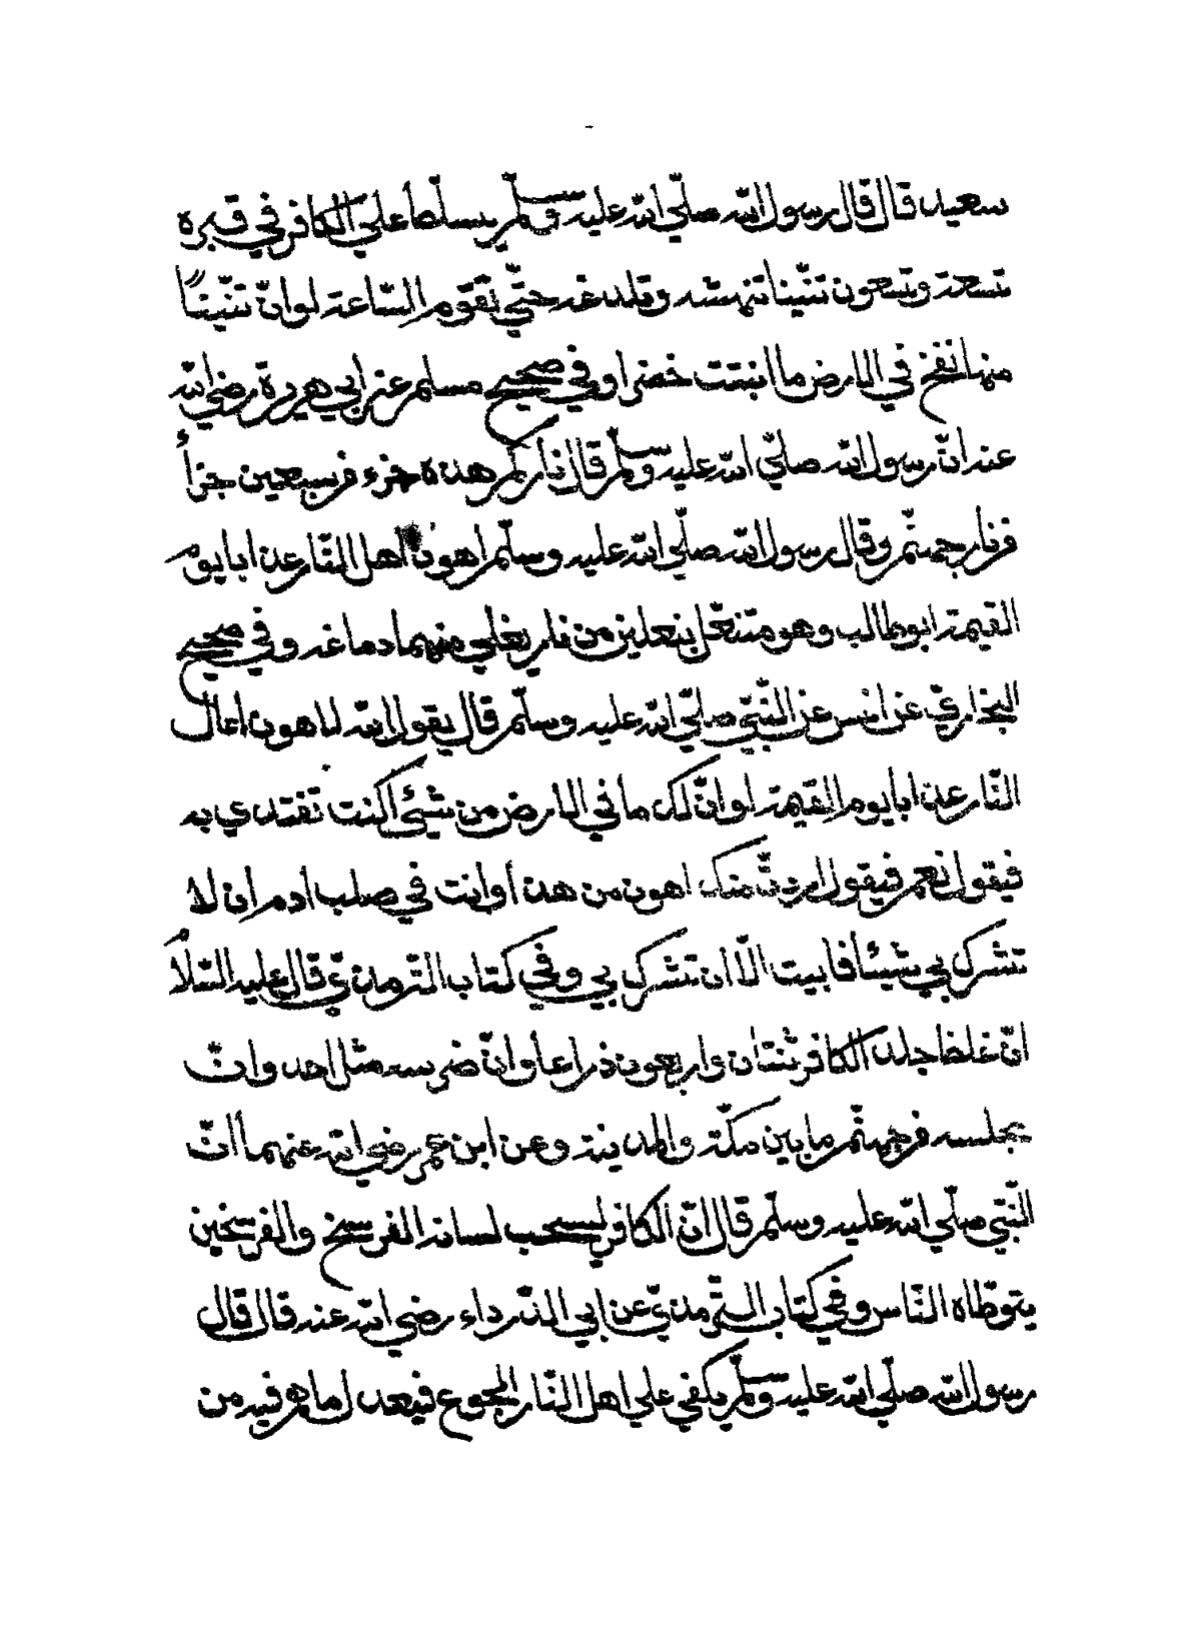 سعيد قال قال رسول الله صلّي الله عليه وسلّم يسلط علي الكافر في قبره
تسعة وتسعون تنّينا تنهشه وتلدغه حتّي تقوم السّاعة لو انّ تنّينًا
منها نفخ في الارض ما انبتت خضرا وفي صحيح مسلم عن ابي هريرة رضي الله
عنه انّ رسول الله صلّي الله عليه وسلّم قال ناركم هذه جزء من سبعين جزأ
من نار جهنّم وقال رسول الله صلّي الله عليه وسلّم اهون اهل النّار عذابا يوم
القيمة ابو طالب وهو متنعّل بنعلين من نار يغلي منهما دماغه وفي صحيح
البخاريّ عن انس عن النّبيّ صلّي الله عليه وسلّم قال يقول الله لاهون اهل
النّار عذابا يوم القيمة لو انّ لك ما في الارض من شيئ اكنت تفتدي به
فيقول نعم فيقول اردتّ منك اهون من هذا وانت في صلب ادم ان لا
تشرك بي شيئأ فابيت الّا ان تشرك بي وفي كتاب التّرمذيّ قال عليه السّلام
انّ غلظ جلد الكافر ثنتان واربعون ذراعأ وانّ ضرسه مثل احد وانّ
مجلسه من جهنّم ما بين مكّة والمدينة وعن ابن عمر رضي الله عنهما انّ
النّبيّ صلّي الله عليه وسلّم قال انّ الكافر ليسحب لسانه الفرسخ والفرسخين
يتوطّاه النّاس وفي كتاب التّرمذيّ عن ابي الدّرداء رضي الله عنه قال قال
رسول الله صلّي الله عليه وسلّم يلقي علي اهل النّار الجوع فيعدل ما هم فيه من